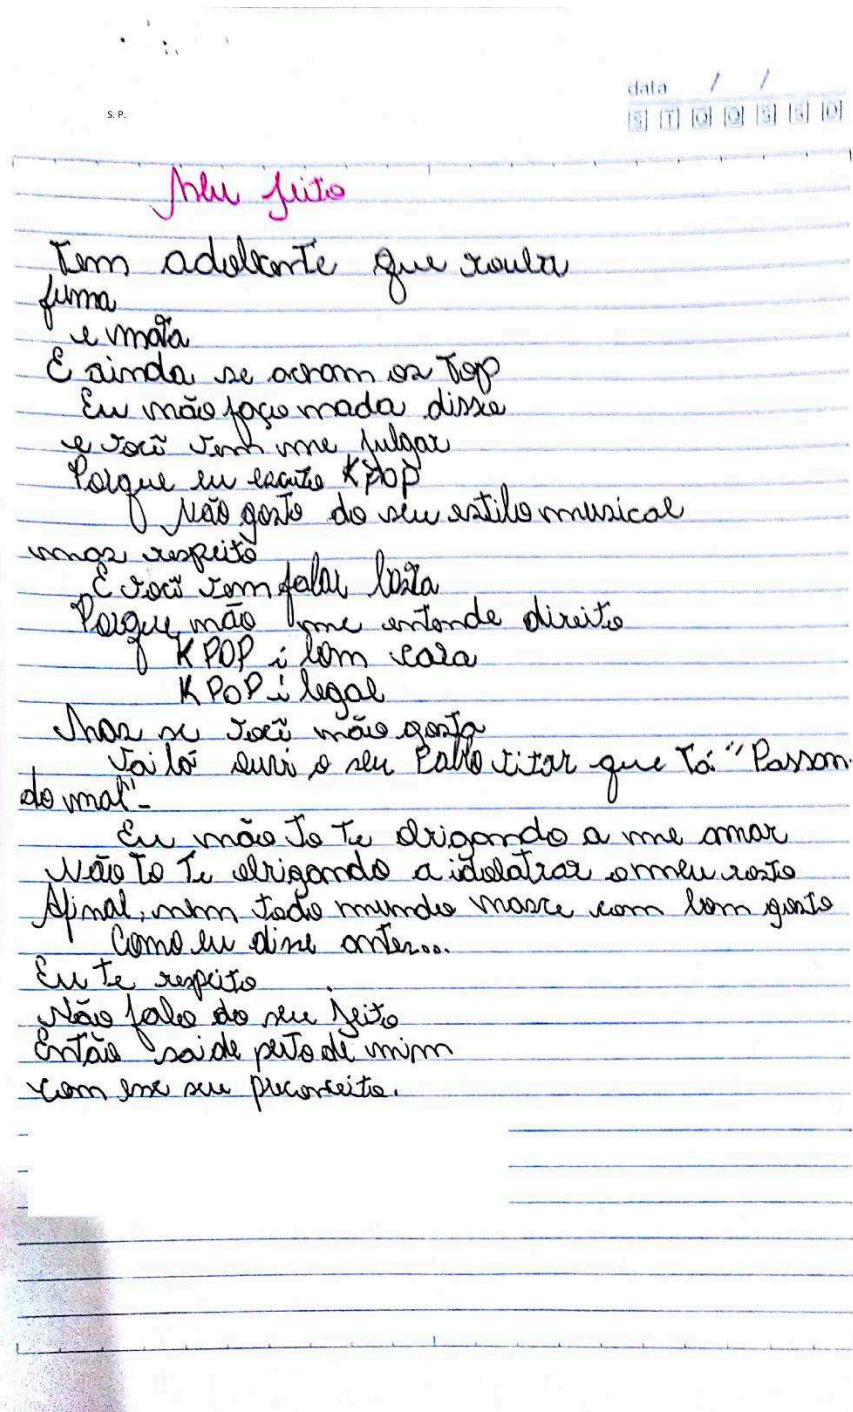 data / /
S. P.
S T Q Q S S D
Meu jeito
Tem adolecente que rouba
fuma
e mata
E ainda se acham os Top
Eu não faço nada disso
e você vem me julgar
Porque eu escuto Kpop
Não gosto do seu estilo musical
mas respeito
E você vem falar bosta
Porque não me entende direito
KPOP é bom cara
KPOP é legal
Mas se você não gosta
Vai lá ouvir o seu Pablo vitar que tá "Passan-
do mal"
Eu não To Te obrigando a me amar
Não To Te obrigando a idolatrar o meu rosto
Afinal, nem todo mundo nasce com bom gosto
Como eu disse antes...
Eu te respeito
Não falo do seu jeito
Então sai de perto de mim
com esse seu preconceito.